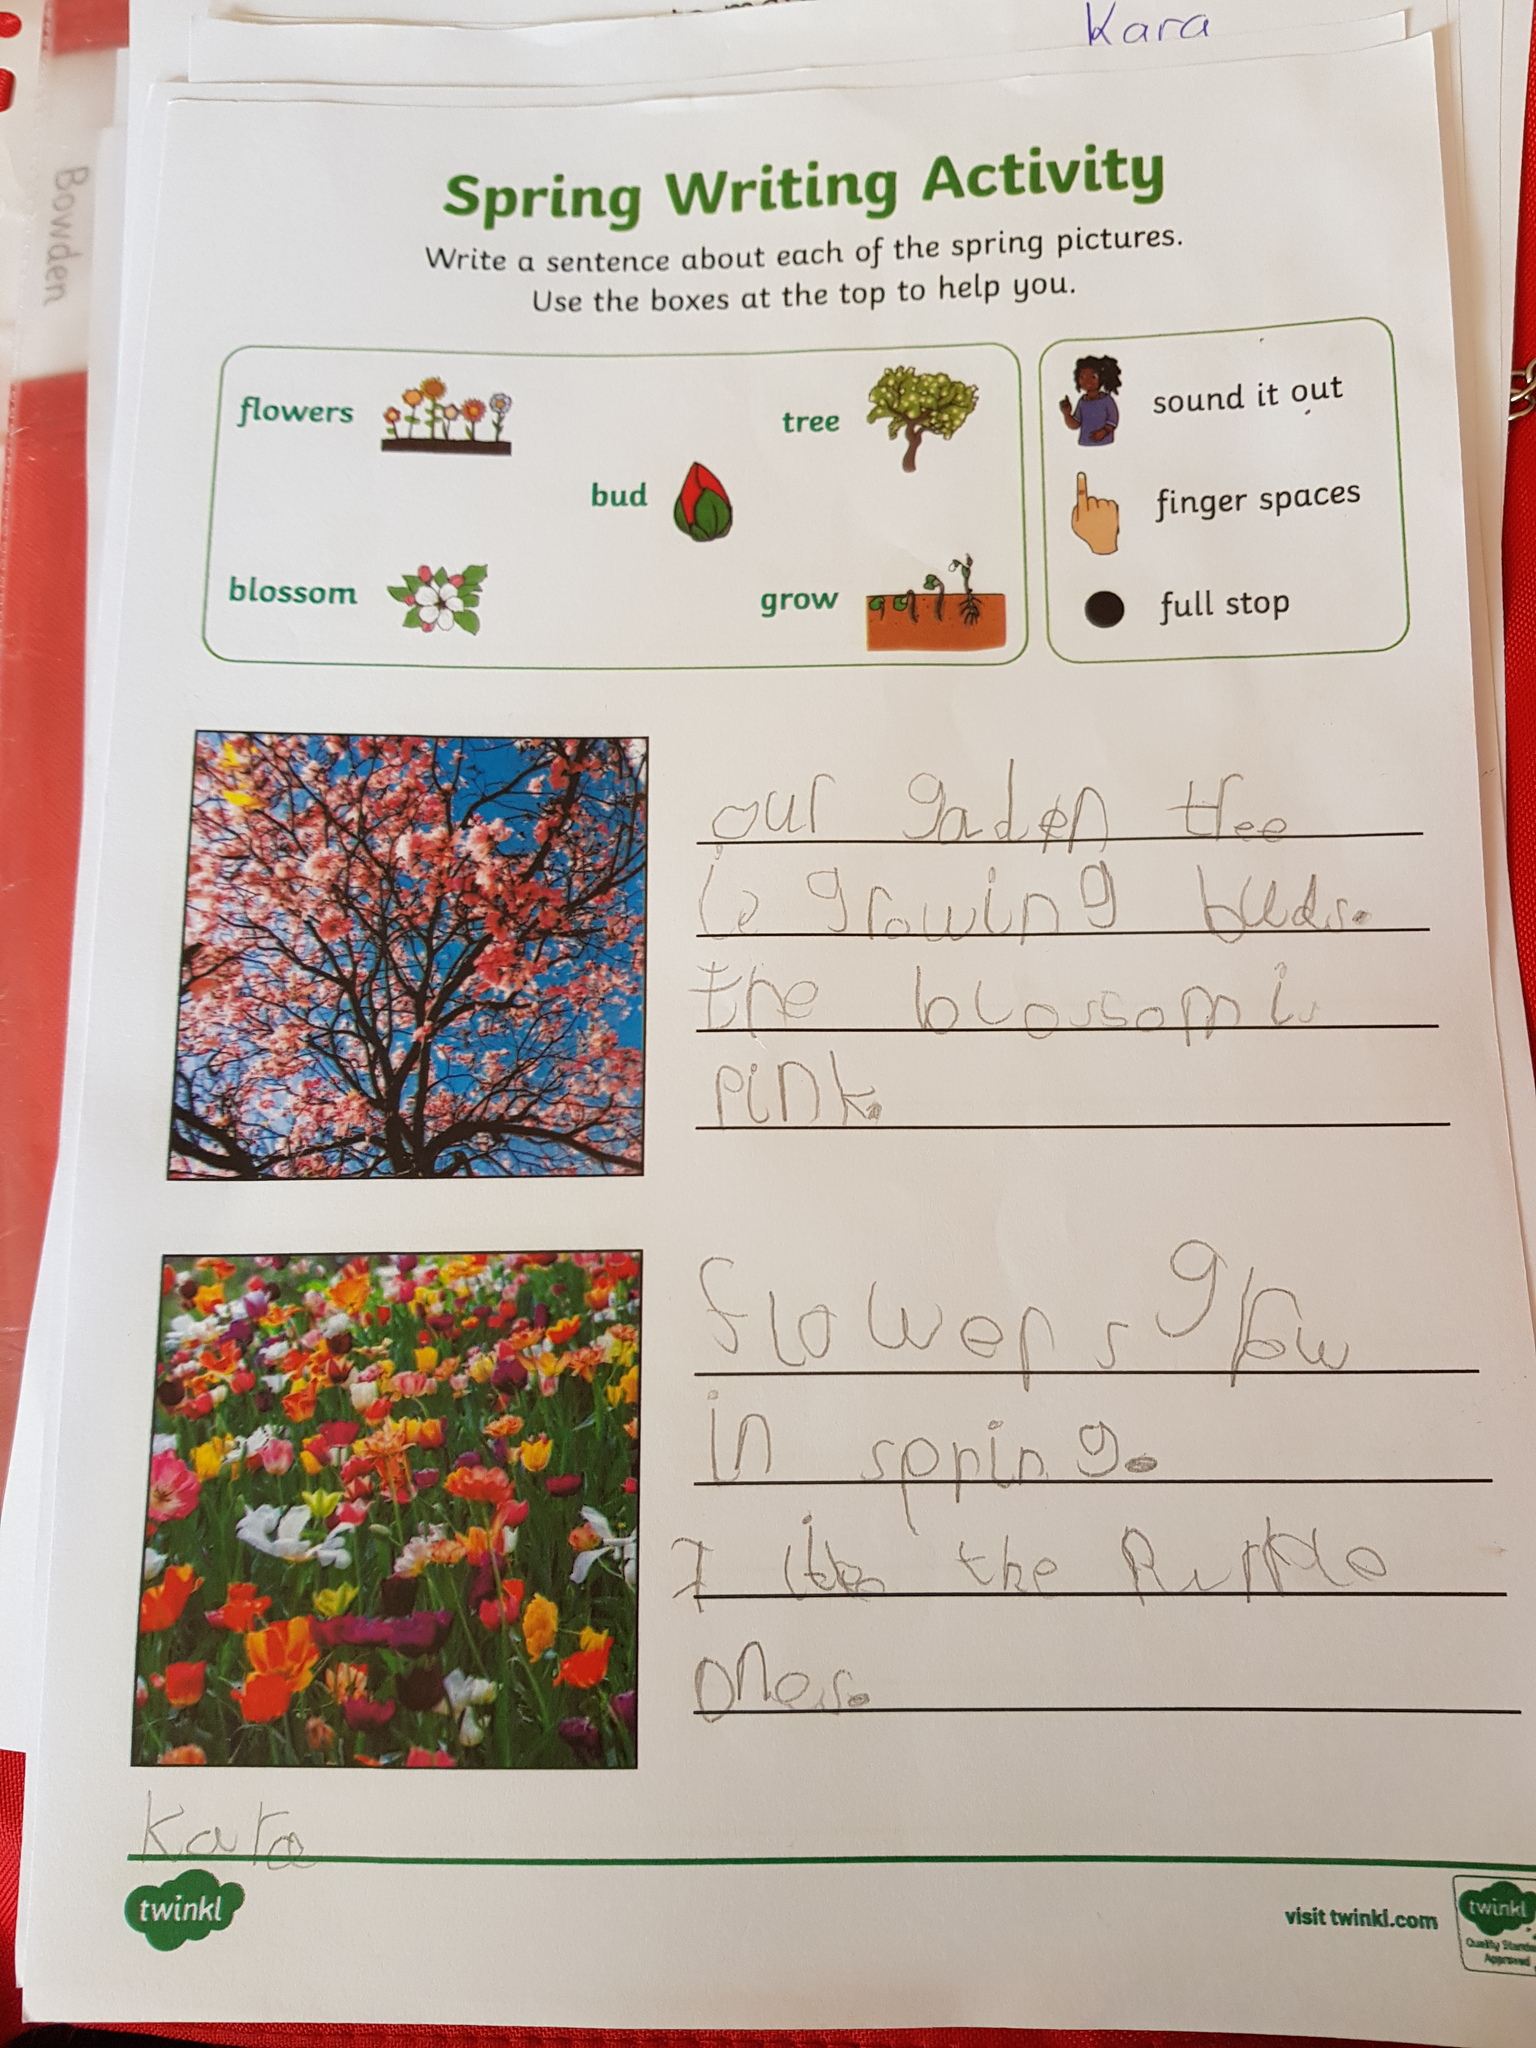 Kara
Bowden
Spring Writing Activity
Write a sentence about each of the spring pictures.
Use the boxes at the top to help you.
flowers
tree
bud
blossom
grow
sound it out
finger spaces
full stop
our gaden tree
is growing buds.
the blossom is
pink.
flowers grow
in spring.
I like the Purple
ones.
Kara
twinkl
visit twinkl.com
twinkl
Quality Standard
Approved